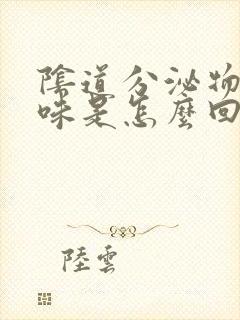 陰道分泌物
味是怎麼回
陸雲